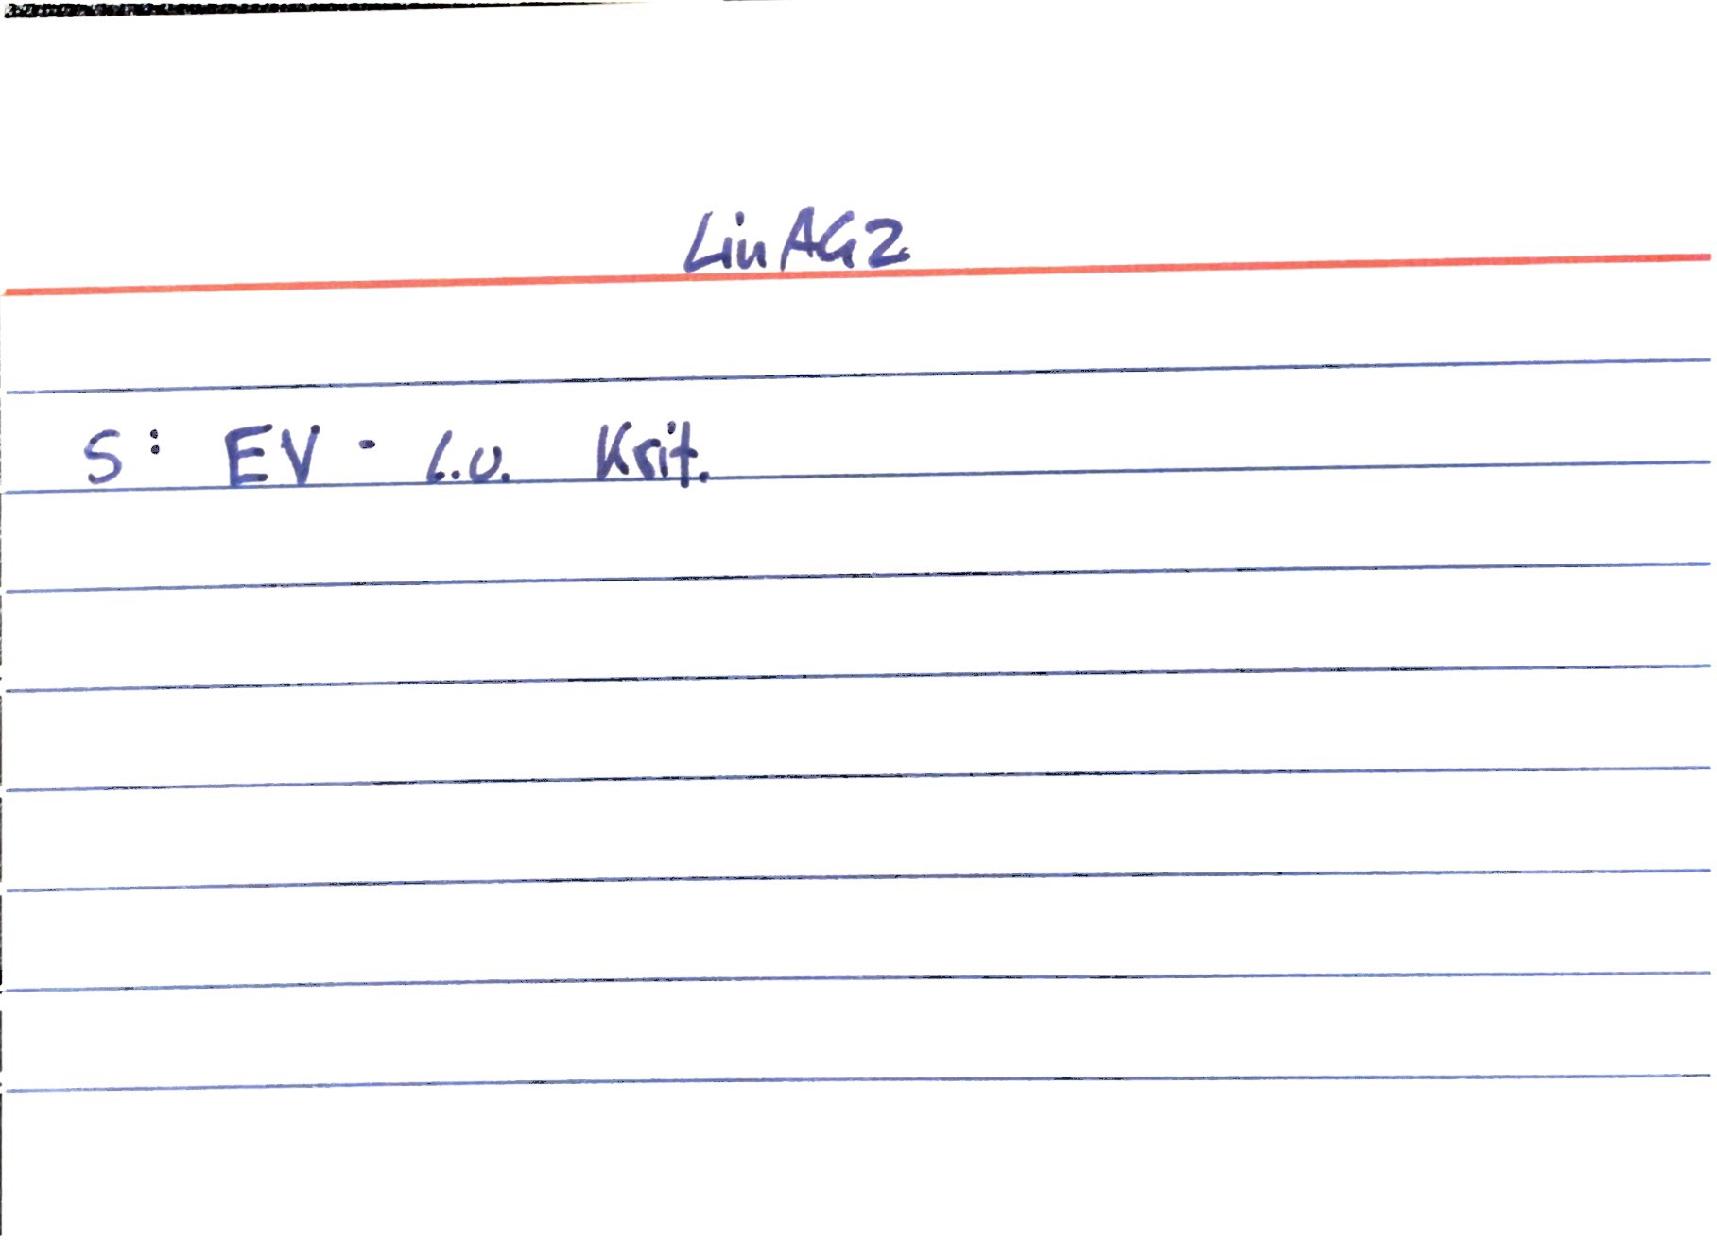 LinAG2
S: EV - l.u. Krit.